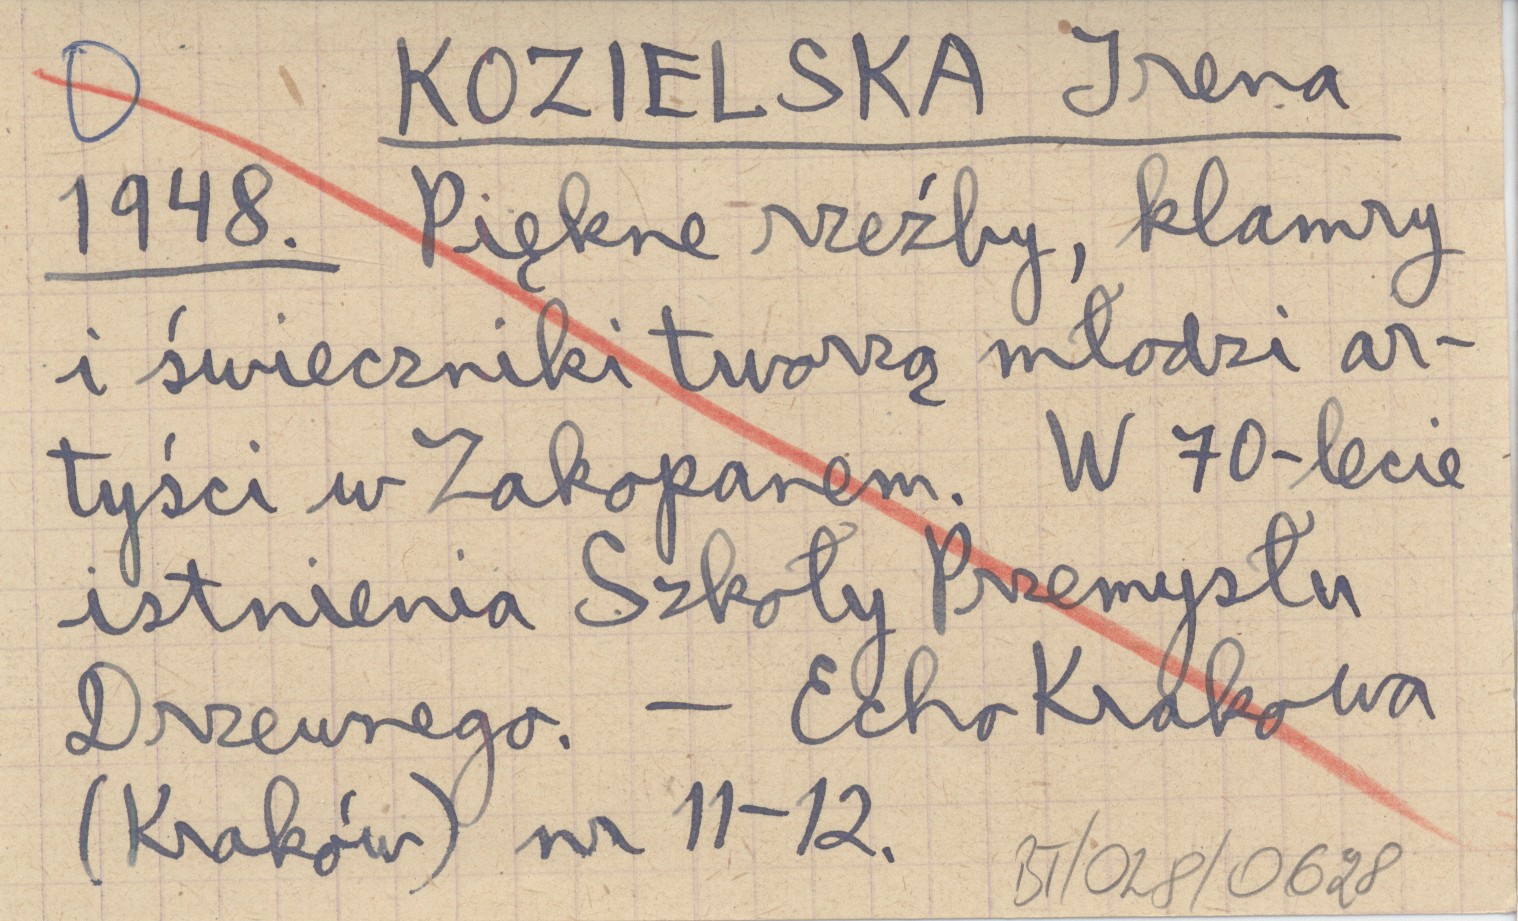 KOZIELSKA Irena
1948. Piękne rzeźby, klamry
i świeczniki tworzą młodzi ar-
tyści w Zakopanem. W 70-lecie
istnienia Szkoły Przemysłu
Drzewnego. — Echo Krakowa
(Kraków) nr 11-12.
BT/028/0628